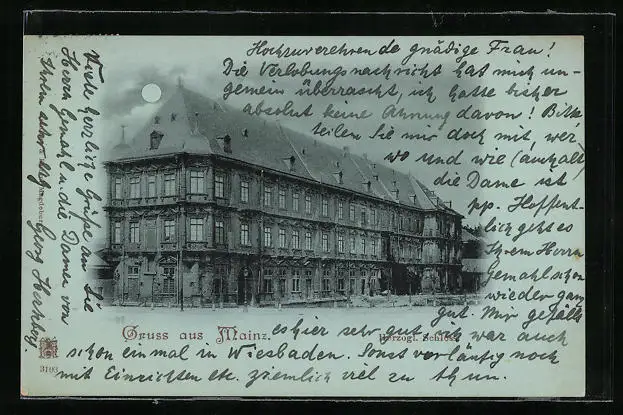 Hochzuverehrende gnädige Frau!
Die Verlobungsnachricht hat mich un-
gemein überrascht, ich hatte bisher
absolut keine Ahnung davon! Bitte
teilen Sie mir doch mit, wer,
wo und wie (auch alt)
die Dame ist
pp. Hoffent-
lich geht es
Ihrem Herrn
Gemahl schon
wieder ganz
gut. Mir gefällt
es hier sehr gut, ich war auch
schon einmal in Wiesbaden. Sonst vorläufig noch
mit Einrichten etc. ziemlich viel zu thun.
Viele herzliche Grüße an Sie
Herrn Gemahl u. die Damen von
Ihrem sehr erg.
Georg
Gruss aus Mainz.
Herzogl. Schloss
3193